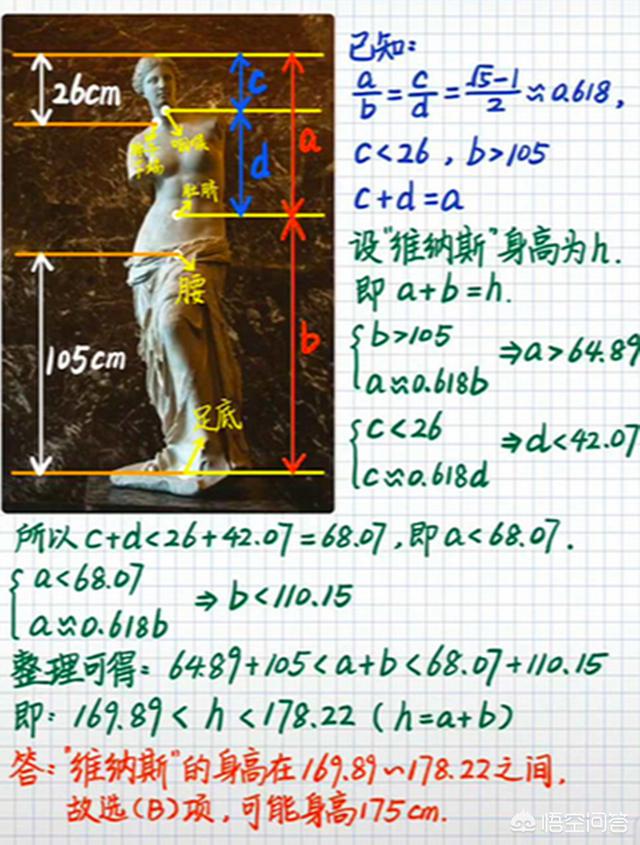 26cm
105cm
c
d
a
b
咽喉
肚脐
腰
足底
已知:
a/b = c/d = (√5-1)/2 ≈ 0.618,
c<26, b>105
c+d=a
设"维纳斯"身高为h.
即 a+b=h.
{ b>105
a≈0.618b ⇒a>64.89
{ c<26
c≈0.618d ⇒d<42.07
所以 c+d<26+42.07=68.07,即 a<68.07.
{ a<68.07
a≈0.618b ⇒ b<110.15
整理可得: 64.89+105<a+b<68.07+110.15
即: 169.89 < h <178.22 (h=a+b)
答:"维纳斯"的身高在169.89~178.22之间,
故选(B)项,可能身高175cm.
悟空问答